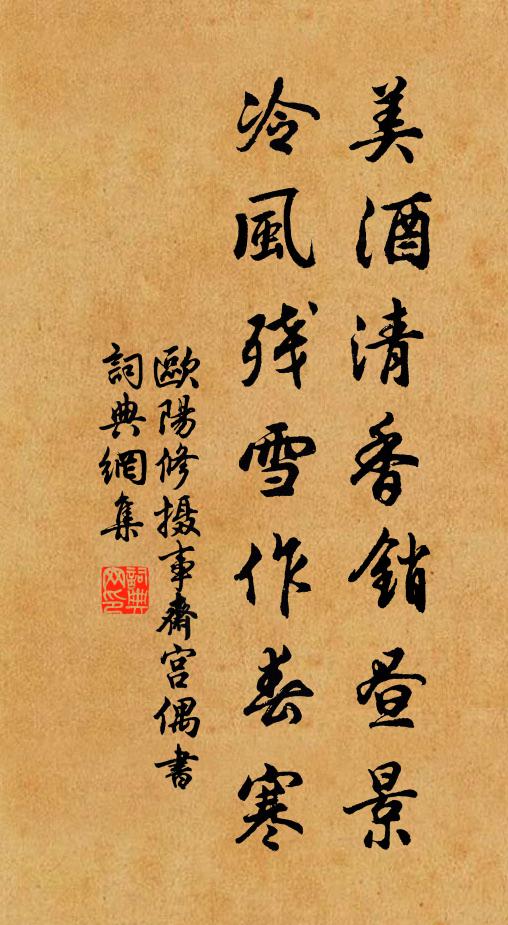 美酒清香銷昼景
冷風残雪作春寒
歐陽修摄事齋宫偶書
詞典網集
詞典网印